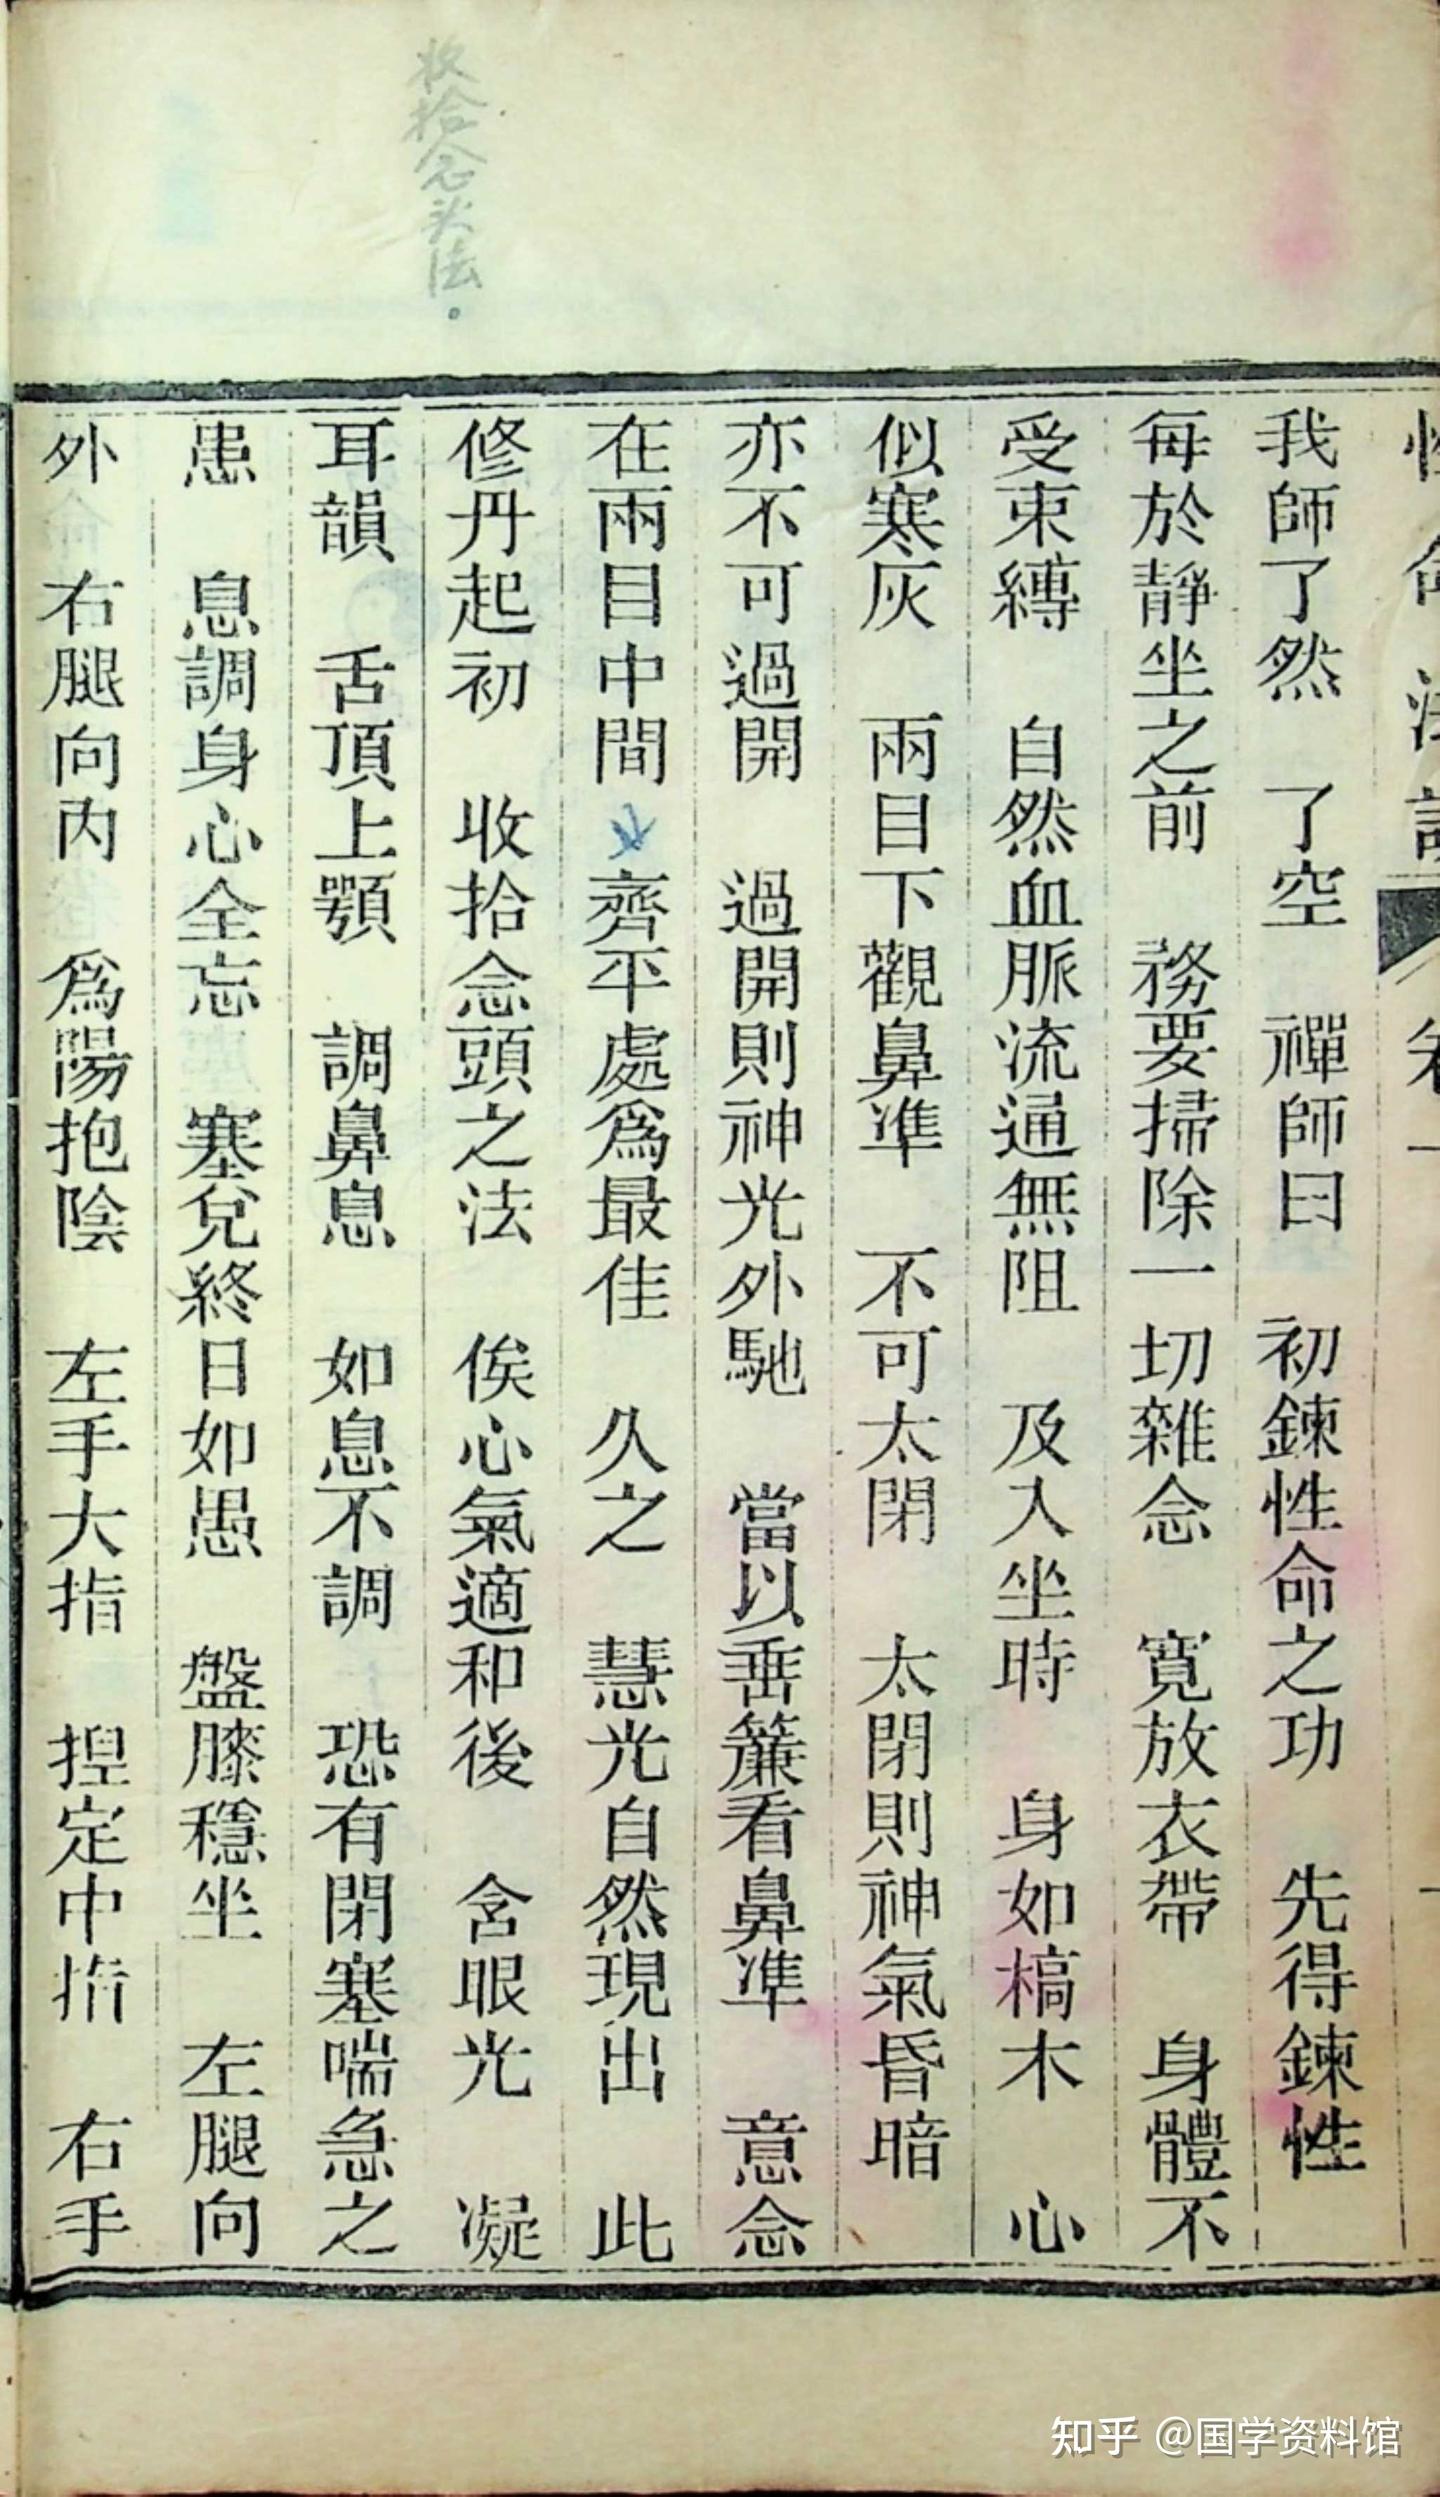 收拾念头法。
性命法訣 卷一 一
我師了然 了空 禪師曰 初鍊性命之功 先得鍊性
每於靜坐之前 務要掃除一切雜念 寬放衣帶 身體不
受束縛 自然血脈流通無阻 及入坐時 身如槁木 心
似寒灰 兩目下觀鼻準 不可太閉 太閉則神氣昏暗
亦不可過開 過開則神光外馳 當以垂簾看鼻準 意念
在兩目中間 齊平處爲最佳 久之 慧光自然現出 此
修丹起初 收拾念頭之法 俟心氣適和後 含眼光 凝
耳韻 舌頂上顎 調鼻息 如息不調 恐有閉塞喘急之
患 息調身心全忘 塞兌終日如愚 盤膝穩坐 左腿向
外 右腿向內 爲陽抱陰 左手大指 揑定中指 右手
知乎 @国学资料馆